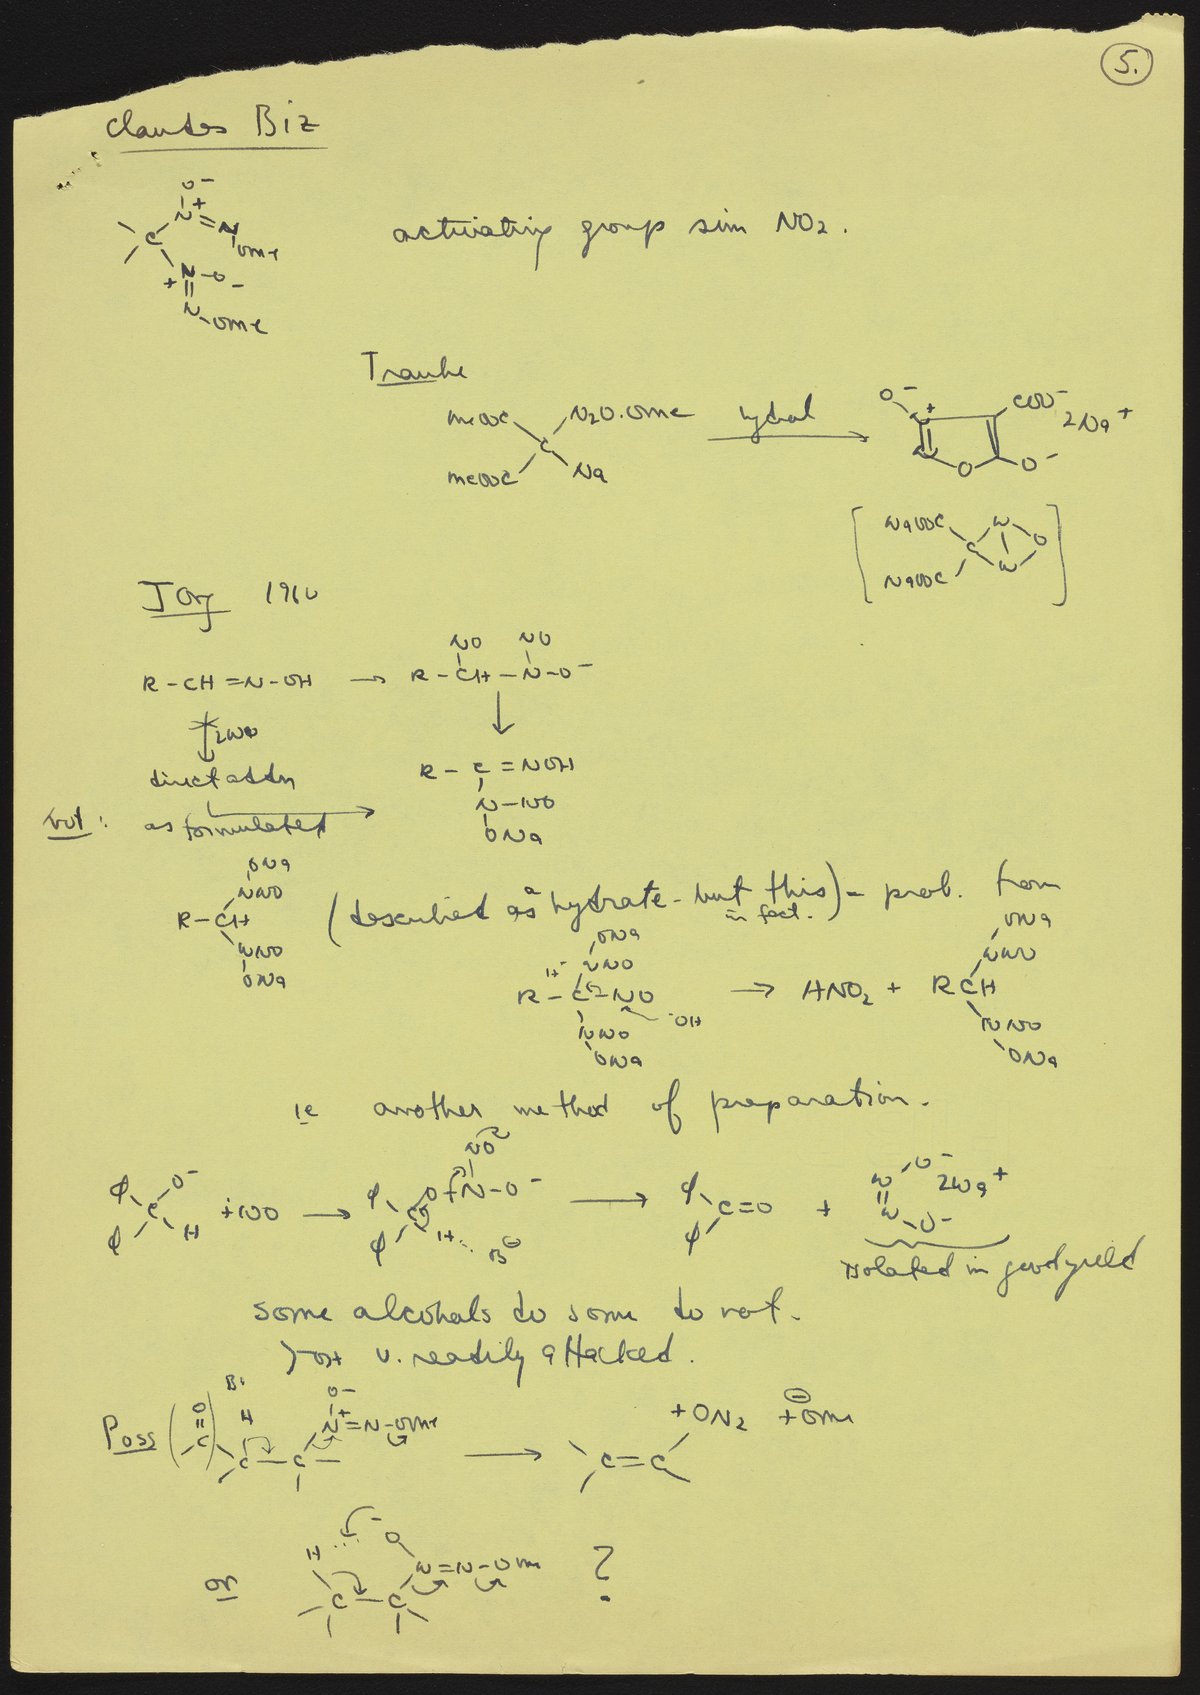 5.
Claudes Biz
O-
N+=N
C OMe
N-O-
+
N-OMe
activating group sim NO2.
Traube
MeOOC N2O.OMe
C
MeOOC Na
hydrol
O- N+ COO- 2Na+
N O O-
NaOOC N
C O
NaOOC N
J Org 1960
NO NO
R-CH=N-OH → R-CH-N-O-
2NO
direct addn
R-C=NOH
N-NO
ONa
but: as formulated
ONa
NNO
R-CH
NNO
ONa
(described as a hydrate - but this) - prob. from
in fact.
ONa
NNO
R-C-NO
NNO OH
ONa
→ HNO2 +
ONa
NNO
RCH
NNO
ONa
ie another method of preparation.
φ O-
C
φ H
+NO →
NO
φ O-N-O-
C
φ H B⊖
→
φ
C=O
φ
+
N O- 2Na+
N-O-
isolated in good yield
some alcohols do some do not.
-OH v. readily attacked.
Poss
O
C
B:
H
C-C
O-
N+=N-OMe
→
C=C
+ON2 +⊖OMe
or
H -O
C-C N=N-OMe
?